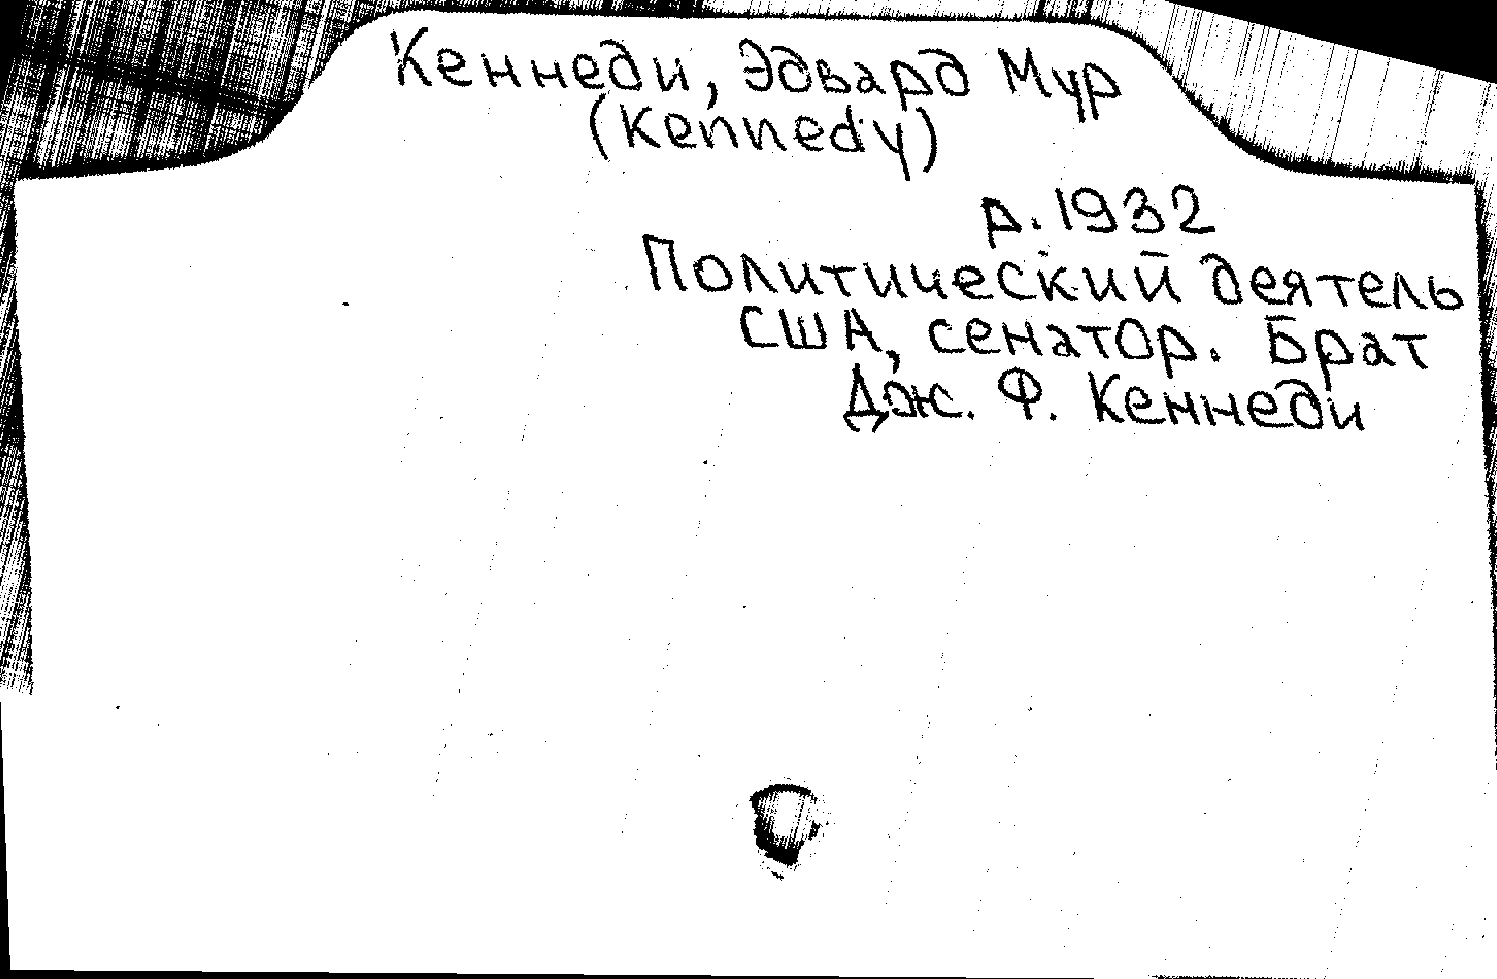 Кеннеди, Эдвард Мур
(Kennedy)
р. 1932
Политический деятель
США, сенатор. Брат
Дж. Ф. Кеннеди